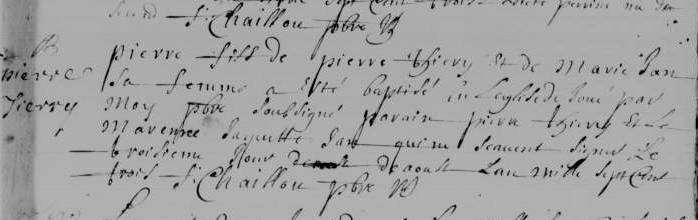 St Chaillou pbre
B
pierre
Tierry
pierre fils de pierre thiery Et de Marie Jan
Sa femme a Esté baptisé En Leglise de par
Moy pbre Soubsigné parain pierre thiery Et Le
Marenne Jaquette Jan qui ne Scavent Signer Le
troisieme Jour daoust Lan mille Sept Cent
trois St Chaillou pbre